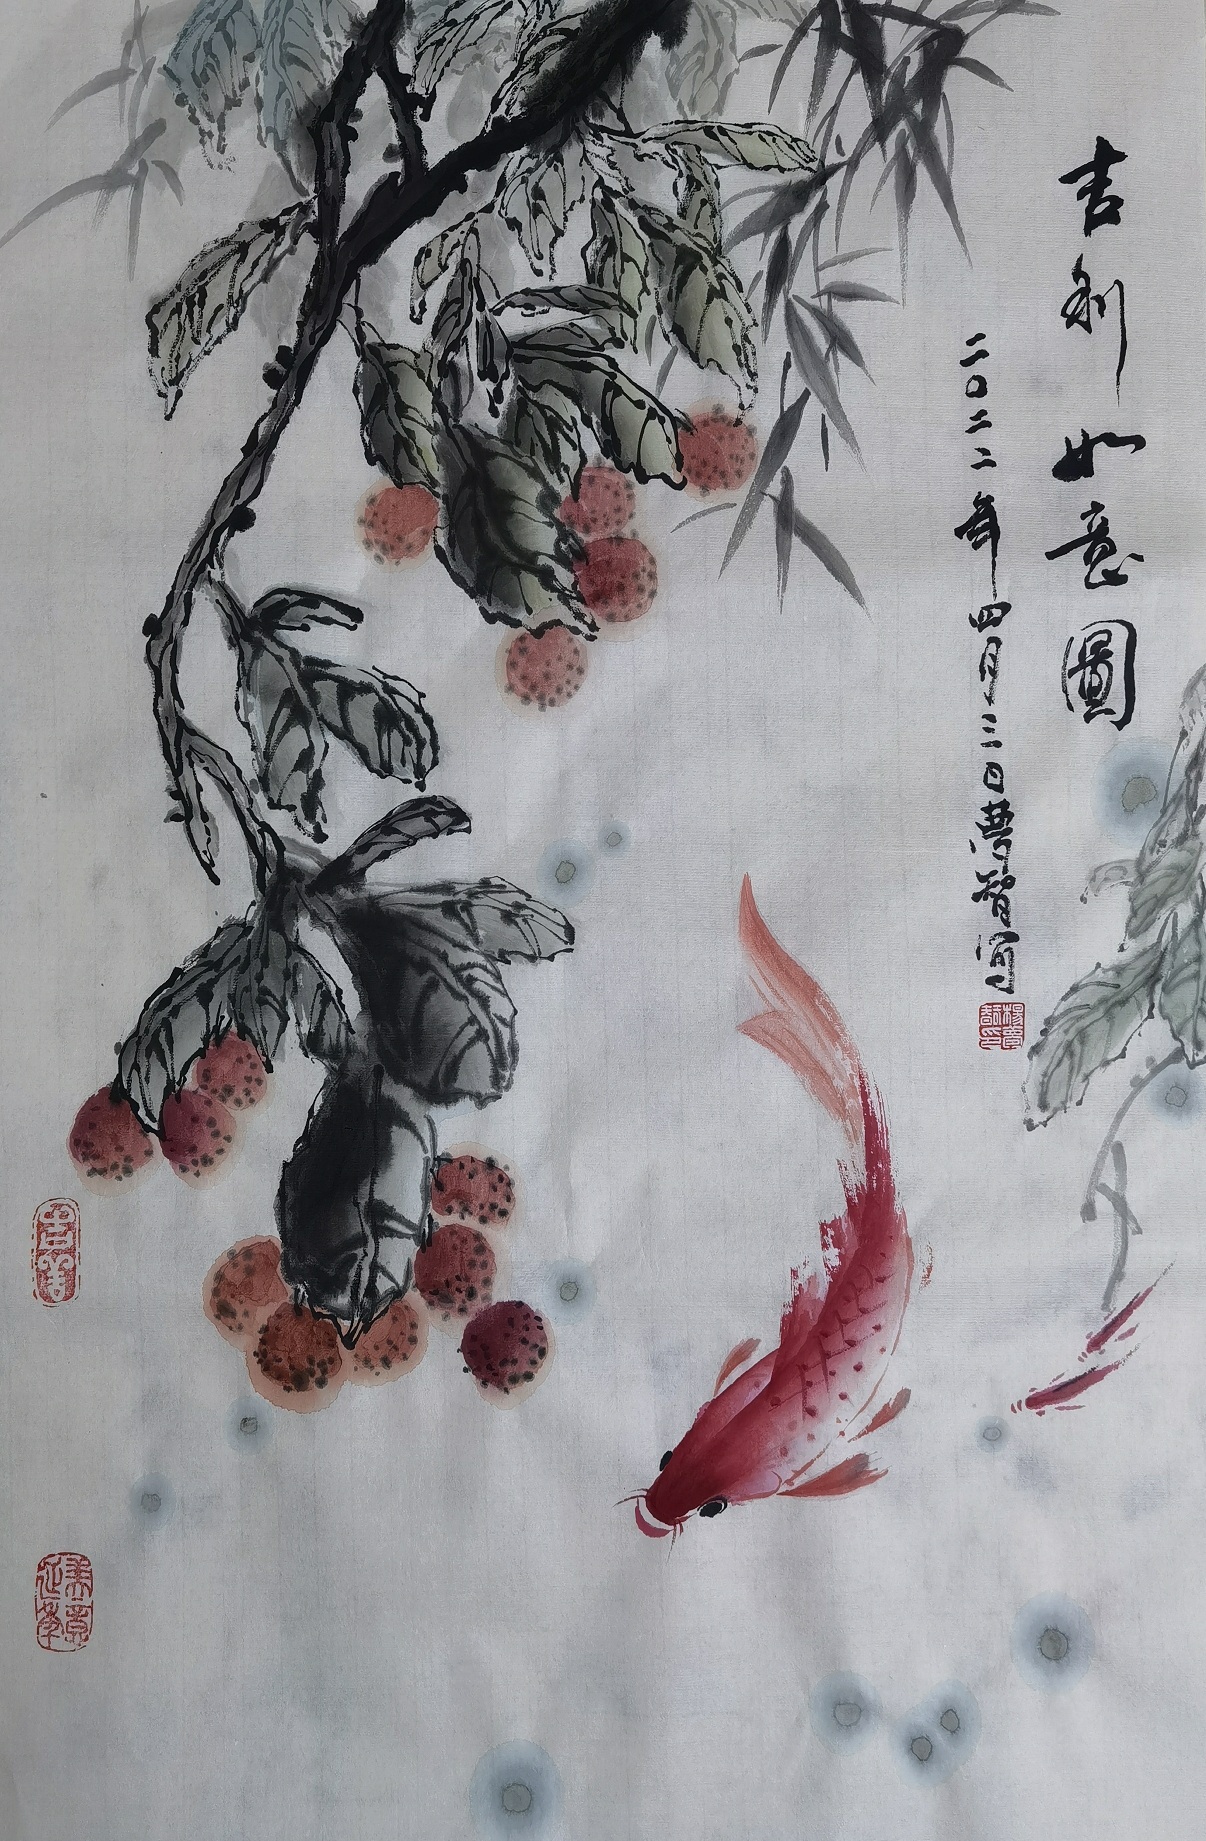 吉利如意圖
二〇二二年四月三日夢智写